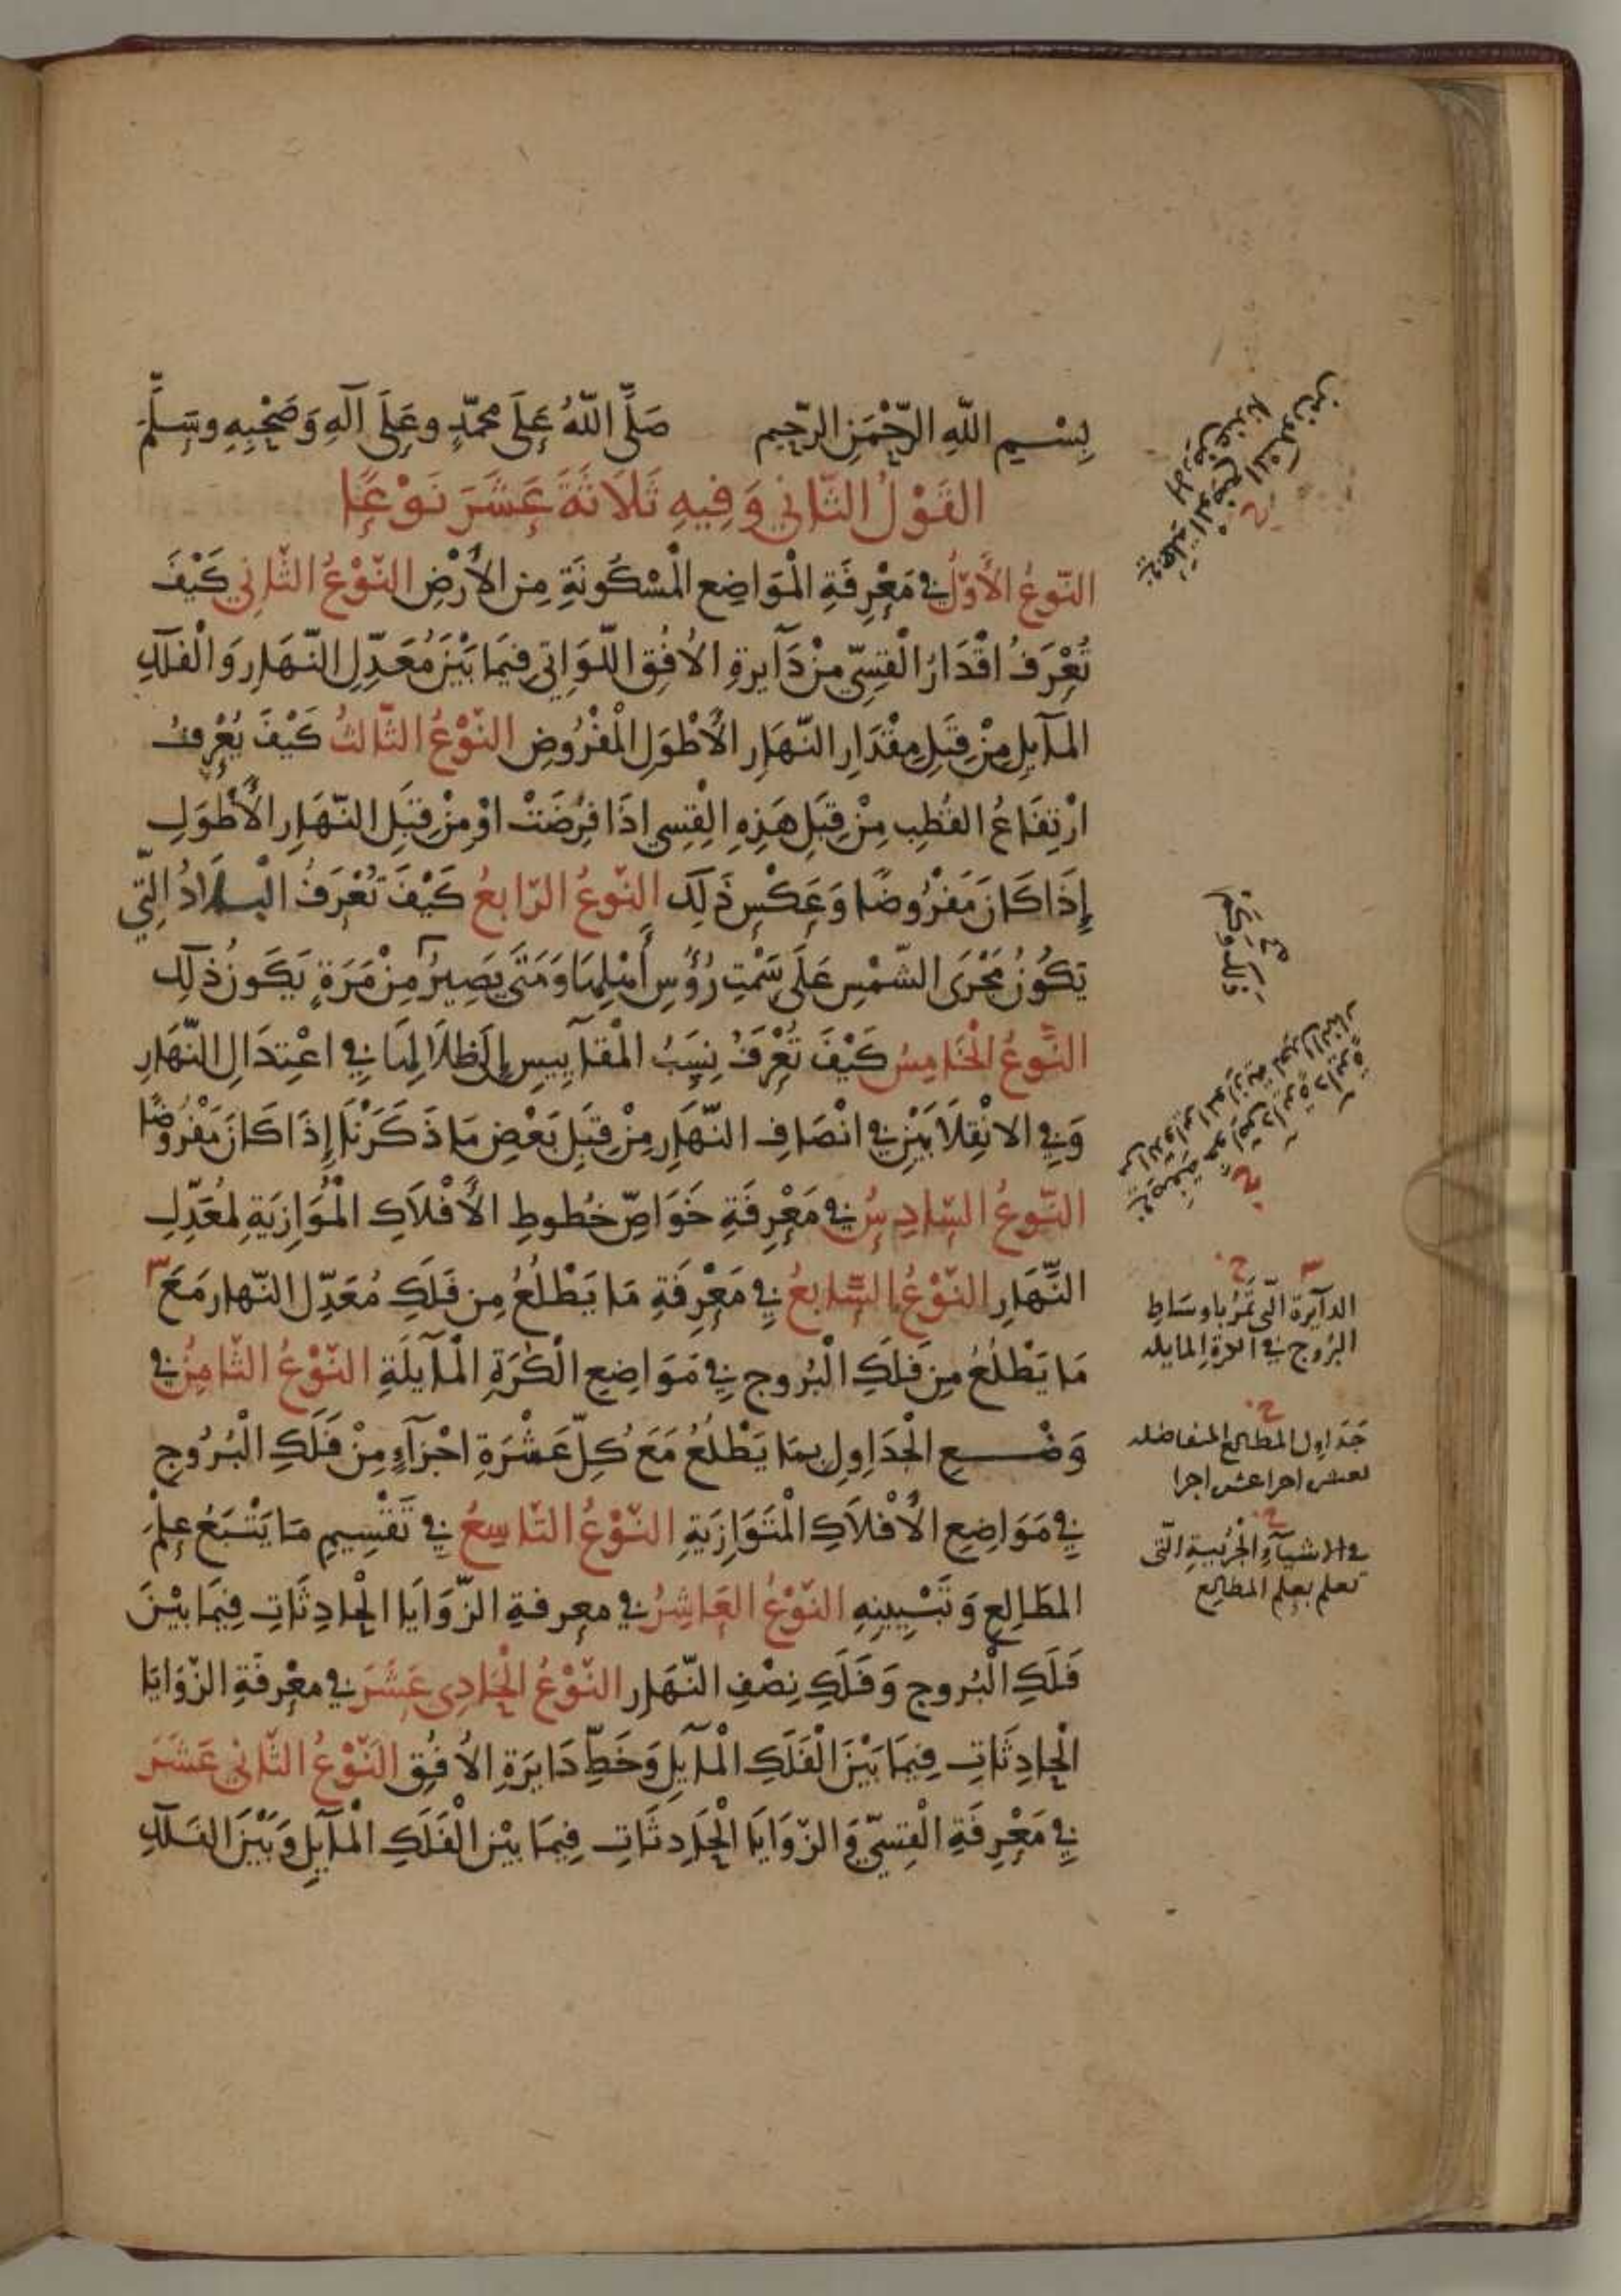 بِسْمِ اللَّهِ الرَّحْمَنِ الرَّحِيمِ صَلَّى اللَّهُ عَلَى مُحَمَّدٍ وعَلَى آلِهِ وَصَحْبِهِ وسَلَّمَ
القَوْلُ الثَّانِي وَفِيهِ ثَلَاثَةَ عَشَرَ نَوْعًا
النَّوعُ الأَوَّلُ فِي مَعْرِفَةِ الْمَوَاضِعِ الْمَسْكُونَةِ مِنَ الأَرْضِ النَّوْعُ الثَّانِي كَيْفَ
تُعْرَفُ اقْدَارُ الْقِسِيِّ مِنْ دَآيرةِ الأُفُقِ اللَّوَاتِي فِيمَا بَيْنَ مُعَدِّلِ النَّهَارِ وَالْفَلَكِ
المَآيِلِ مِنْ قِبَلِ مِقْدَارِ النَّهَارِ الأَطْوَلِ الْمَفْرُوضِ النَّوْعُ الثَّالثُ كَيْفَ يُعْرفُ
ارْتِفَاعُ القُطبِ مِنْ قِبَلِ هَذِهِ الْقِسِي اذَا فُرِضَتْ اوْ مِنْ قِبَلِ النَّهَارِ الأَطْوَلِ
إِذَا كَانَ مَفْرُوضًا وَعَكْسِ ذَلِكَ النَّوعُ الرَّابعُ كَيْفَ تُعْرَفُ الْبلَادُ الَّتِي
يَكُونُ مَجْرَى الشَّمْسِ عَلَى سَمْتِ رُؤُسِ أَهْلِهَا وَمَتَى يَصِيرُ مِنْ مَرَةٍ يَكُونُ ذلِكَ
النَّوعُ الْخَامِسُ كَيْفَ تُعْرَفُ نِسَبُ الْمَقَآيِيسِ إِلَى ظِلَالِهَا فِي اعْتِدَالِ النَّهَارِ
وَفِي الانْقِلَابَيْنِ فِي انْصَافِ النَّهَارِ مِنْ قِبَلِ بَعْضِ مَا ذَكَرْنَا إِذَا كَانَ مَفْرُوضًا
النَّوعُ السَّادِسُ فِي مَعْرِفَةِ خَوَاصِّ خُطُوطِ الأَفْلَاكِ الْمُوَازِيَةِ لمُعَدِّلِ
النَّهَارِ النَّوْعُ السَّابعُ فِي مَعْرِفَةِ مَا يَطْلُعُ مِن فَلَكِ مُعَدِّلِ النَّهارِ مَعَ
مَا يَطْلُعُ مِن فَلَكِ الْبُرُوجِ فِي مَوَاضِعِ الْكُرَةِ الْمَآيِلَةِ النَّوْعُ الثَّامِنُ فِي
وَضْعِ الْجَدَاوِلِ بِمَا يَطْلُعُ مَعَ كُلِّ عَشْرَةِ اجْزَآءٍ مِنْ فَلَكِ الْبُرُوجِ
فِي مَوَاضِعِ الأَفْلَاكِ الْمُتَوَازِيَةِ النَّوْعُ التَّاسِعُ فِي تَقْسِيمِ مَا يَتْبَعُ عِلْمَ
المَطَالِعِ وَتَبْيِينِهِ النَّوْعُ العَاشِرُ فِي معرفةِ الزَّوَايَا الْحَادِثَاتِ فِيمَا بَيْنَ
فَلَكِ الْبُروجِ وَفَلَكِ نِصْفِ النَّهَارِ النَّوْعُ الْحَادِي عَشَرَ فِي معْرِفَةِ الزَّوَايَا
الْحَادِثَاتِ فِيمَا بَيْنَ الْفَلَكِ الْمَايِلِ وَخَطِّ دَايَرَةِ الأُفُقِ النَّوْعُ الثَّانِي عَشَرَ
فِي مَعْرِفَةِ الْقِسِيِّ وَالزَّوَايَا الْحَادِثَاتِ فِيمَا بَيْنَ الْفَلَكِ الْمَآيِلِ وَبَيْنَ الفَلَكِ
الدآيرة الّتى تَمُرّ باوسَاطِ
البُرُوج فِي الكرةِ المايله
جَدَاوِل المطالع المتفاضله
لعشر اجزا عشر اجزا
في الاشيآءِ الجُزئيةِ الّتى
تعلم بعلم المطالع